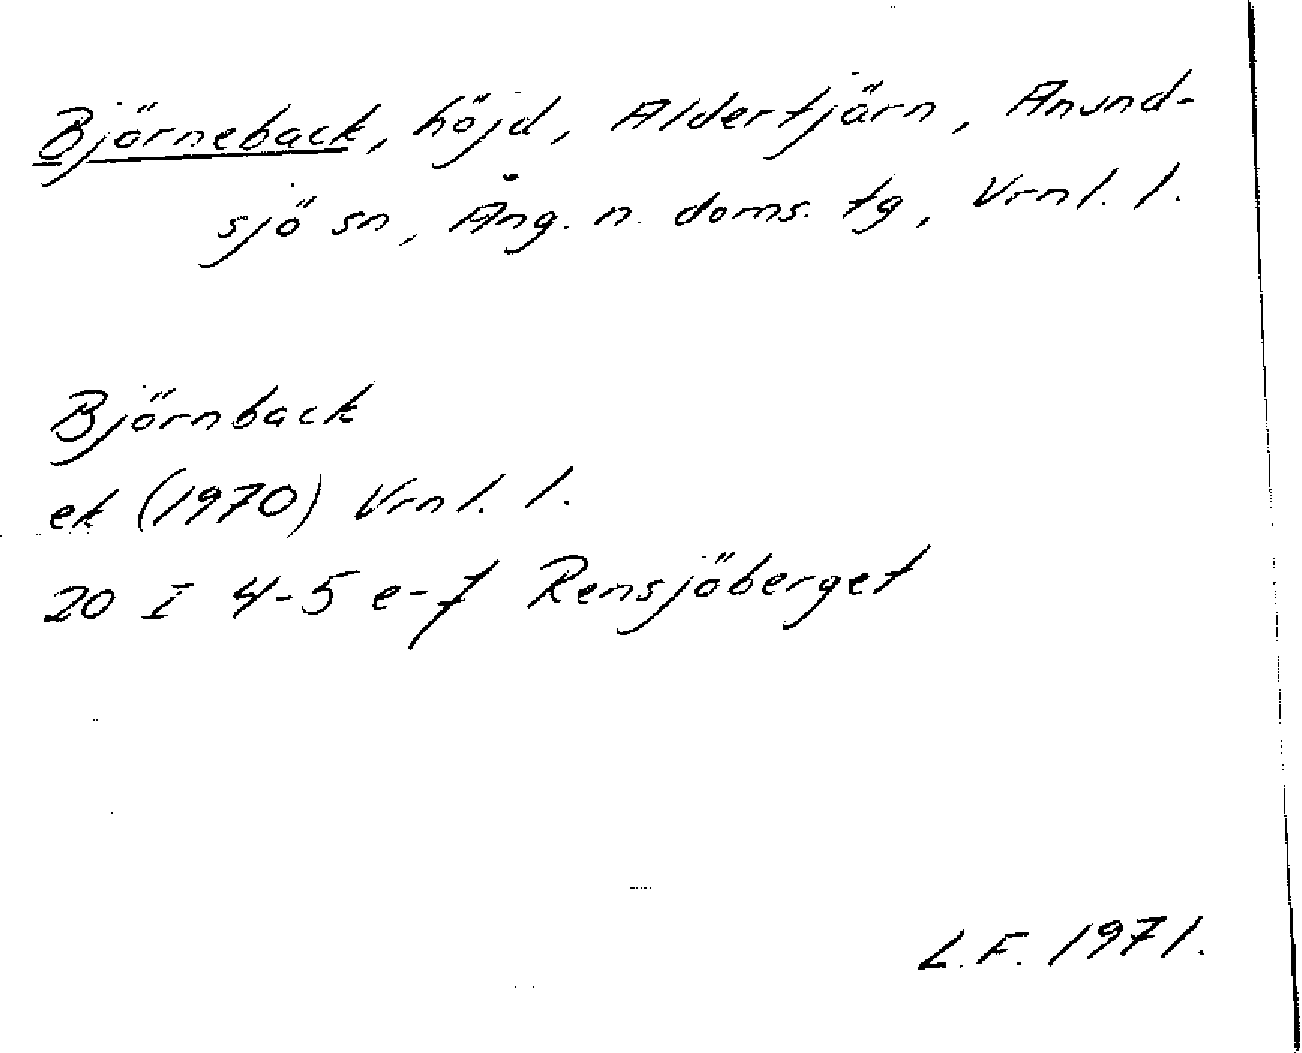 Björneback, höjd, Aldertjärn, Anund-
sjö sn, Ång. n. doms. tg, Vrnl. l.
Björnback
ek (1970) Vrnl. l.
20 I 4-5 e-f Rensjöberget
L.F. 1971.